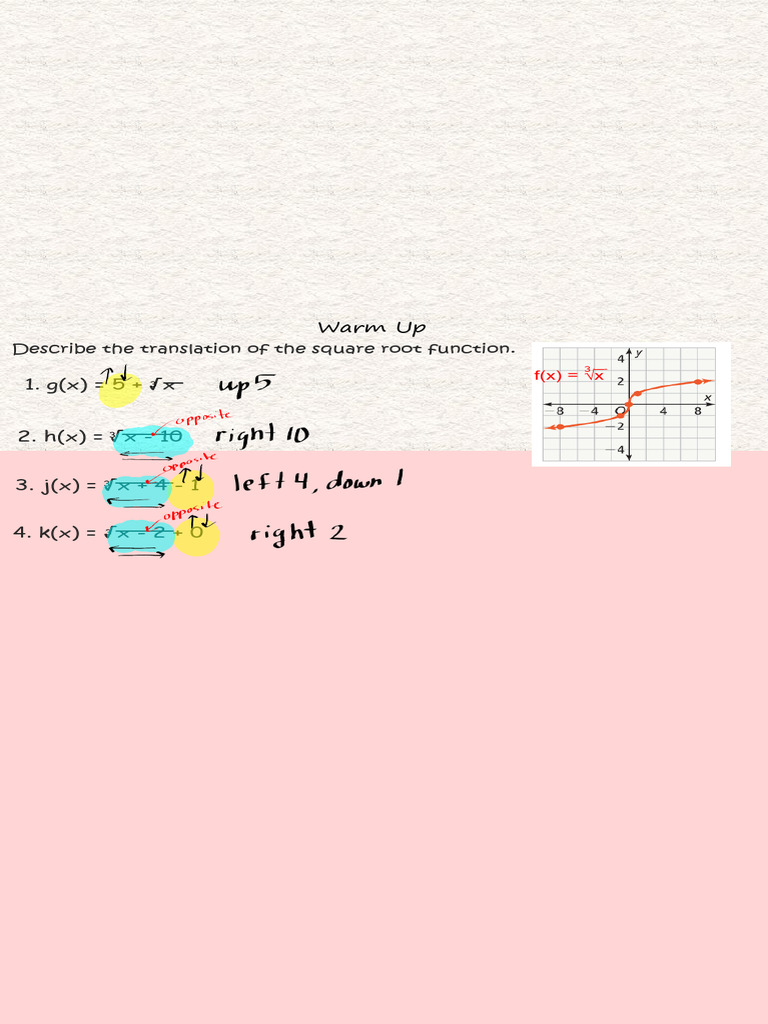 Warm Up
Describe the translation of the square root function.
1. g(x) = 5 + ∛x up 5
opposite
2. h(x) = ∛x - 10 right 10
opposite
3. j(x) = ∛x + 4 - 1 left 4, down 1
opposite
4. k(x) = ∛x - 2 + 0 right 2
f(x) = ∛x
y
4
2
-8 -4 O 4 8 x
-2
-4